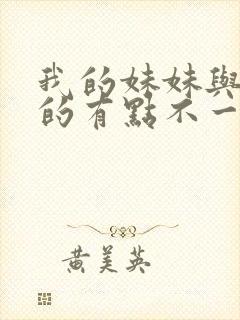 我的妹妹與
的有點不一
黄美英